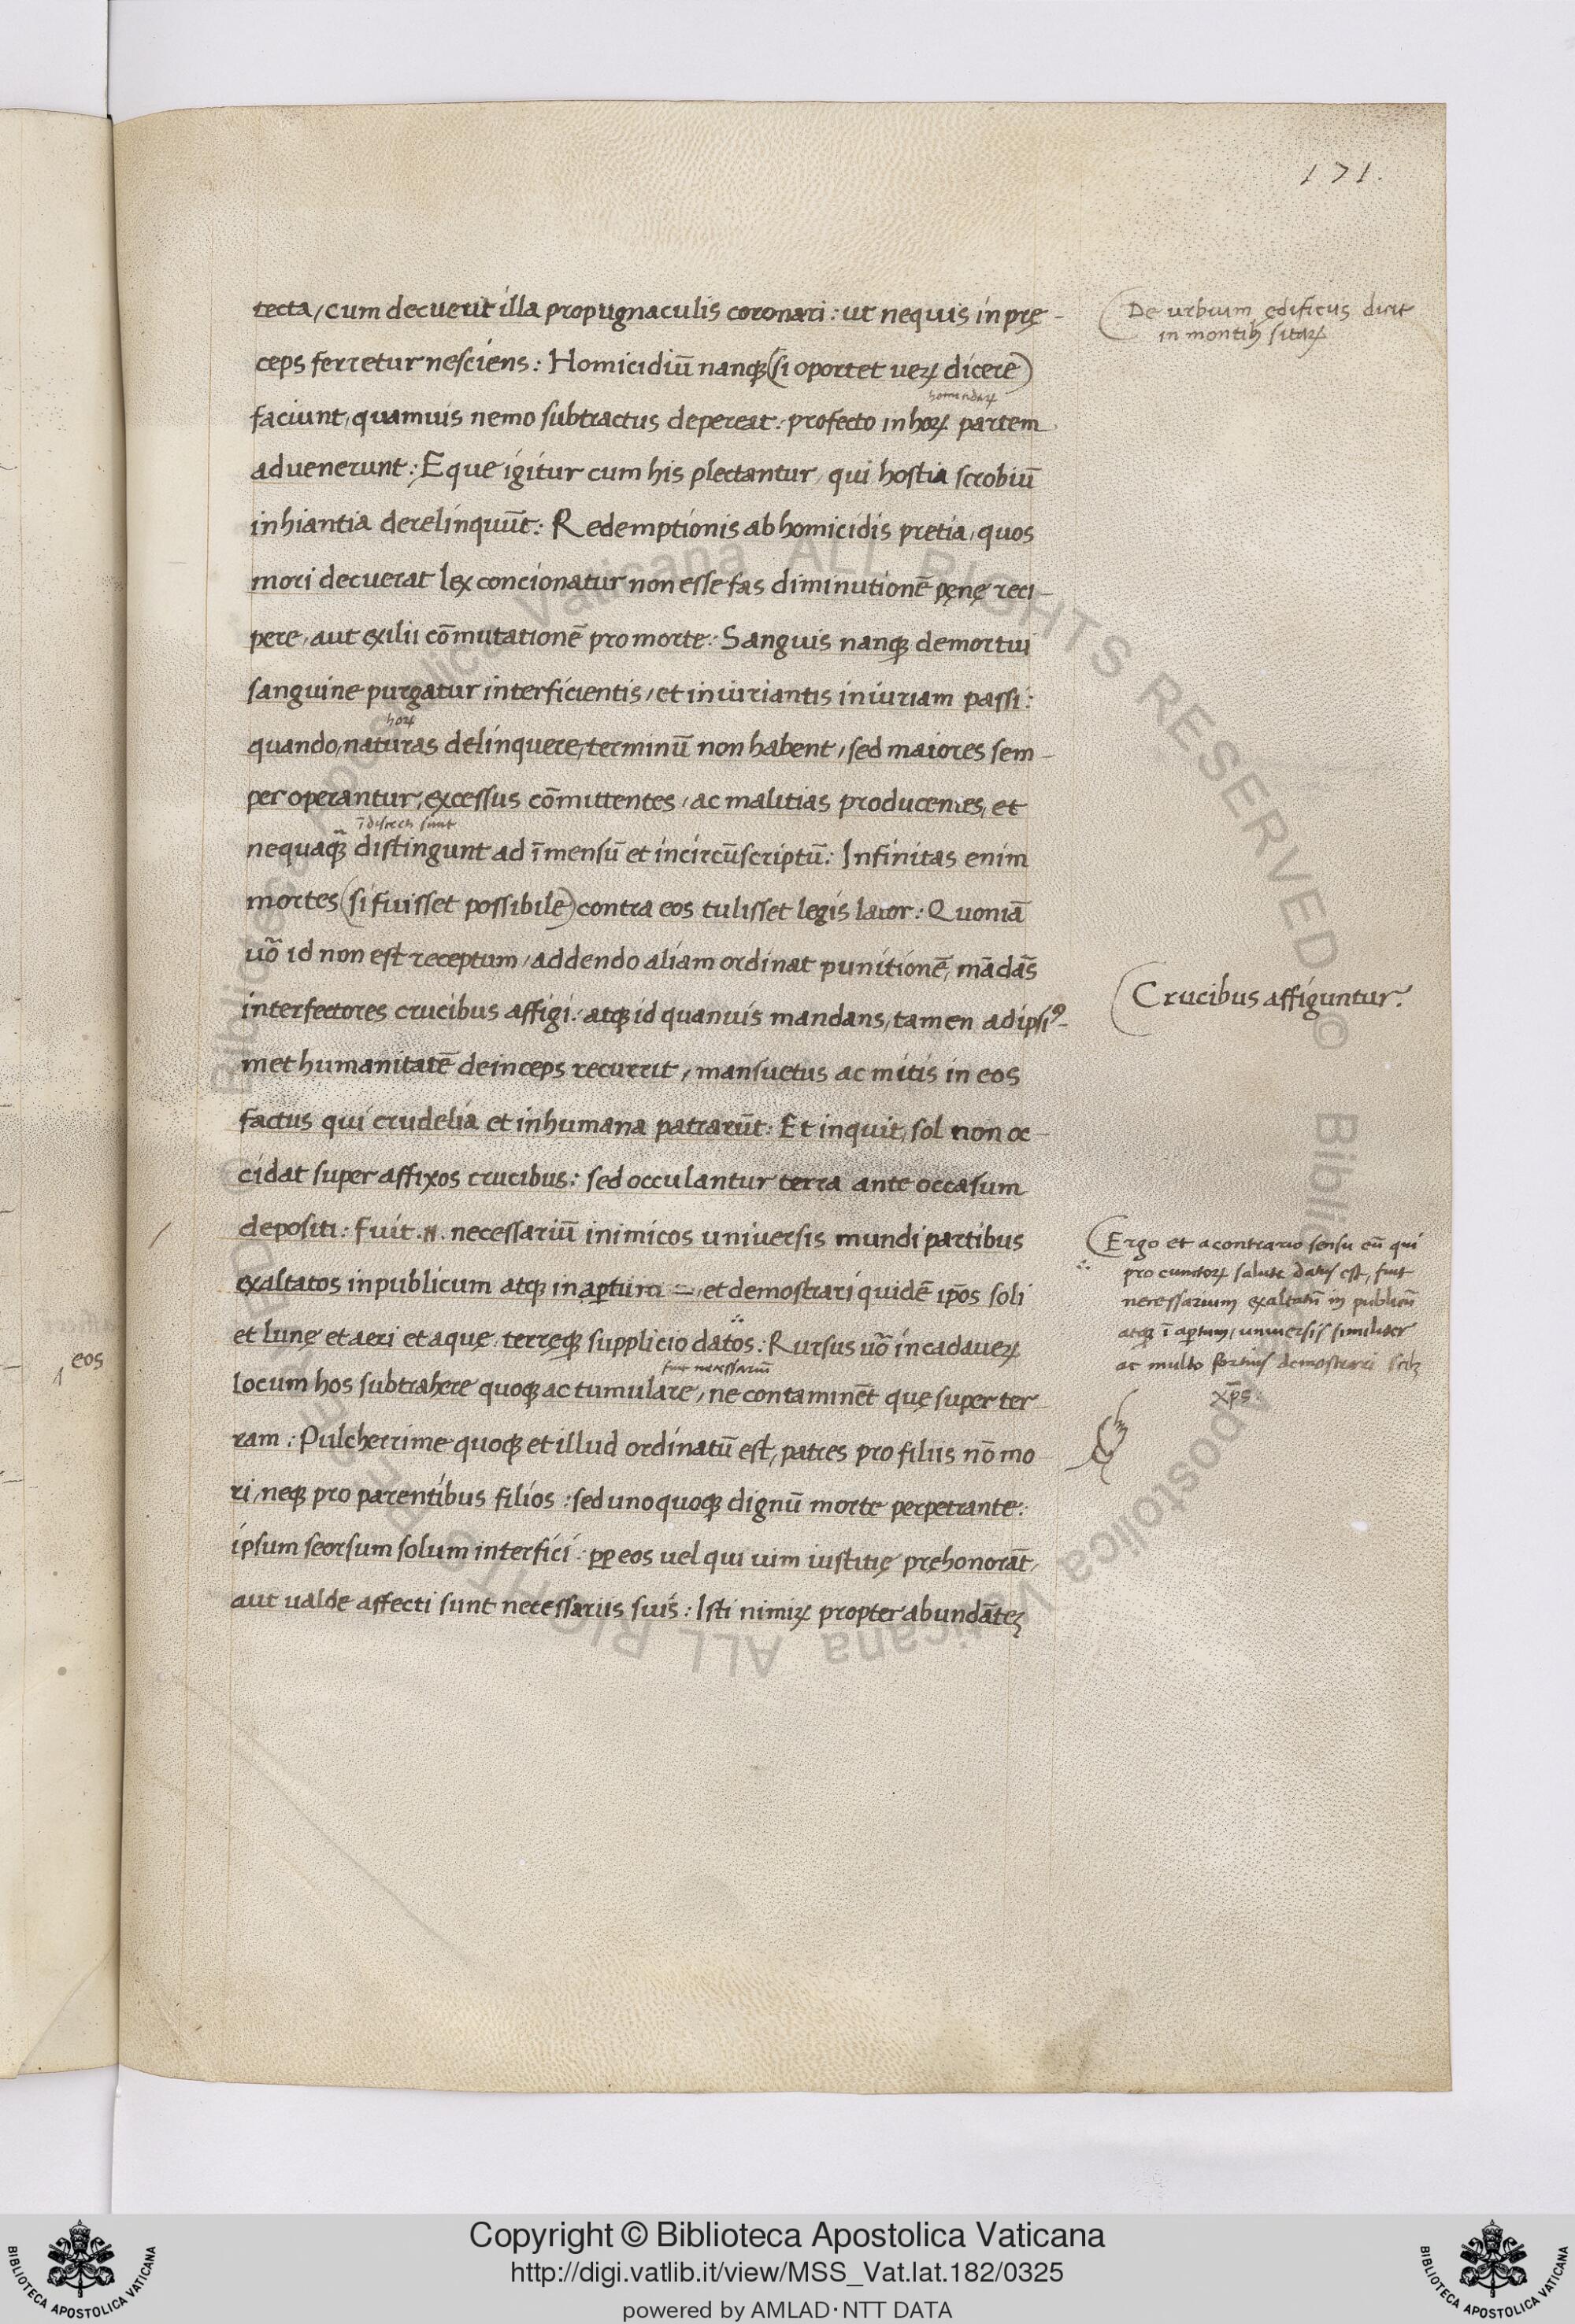 171.
tecta, cum decuerit illa propugnaculis coronari: ut nequis in prę-
ceps ferretur nesciens: Homicidiū nanqꝫ (si oportet ueꝝ dicere)
homicidaꝝ
faciunt, quamuis nemo subtractus depereat: profecto in hoꝝ partem
aduenerunt: Eque igitur cum his plectantur, qui hostia scrobiū
inhiantia derelinquūt: Redemptionis ab homicidis pretia, quos
mori decuerat lex concionatur non esse fas diminutionē pęnę reci-
pere, aut exilii cōmutationē pro morte: Sanguis nanqꝫ demortui
sanguine purgatur interficientis, et iniuriantis iniuriam passi:
hoꝝ
quando, naturas delinquere, terminū non habent, sed maiores sem-
per operantur, excessus cōmittentes, ac malitias producentes, et
nequaqꝫ̄ distingunt ad īmensū et incircūscriptū: Infinitas enim
mortes (si fuisset possibile) contra eos tulisset legis lator: Quoniā
uō id non est receptum, addendo aliam ordinat punitionē, mādās
interfectores crucibus affigi: atqꝫ id quanuis mandans, tamen ad ipsiꝰ-
met humanitatē deinceps recurrit, mansuetus ac mitis in eos
factus qui crudelia et inhumana patrarūt: Et inquit, sol non oc-
cidat super affixos crucibus: sed occulantur terra ante occasum
depositi: Fuit .n. necessariū inimicos universis mundi partibus
exaltatos in publicum atqꝫ in aꝑtum =, et demostrari quidē ip̄os soli
et lunę et aeri et aquę, terręqꝫ supplicio datos: Rursus uō in cadaueꝝ
fuit necessariū
locum hos subtrahere quoqꝫ ac tumulare, ne contaminēt quę super ter-
ram: Pulcherrime quoqꝫ et illud ordinatū est, patres pro filiis nō mo-
ri, neqꝫ pro parentibus filios: sed unoquoqꝫ dignū morte perpetrante:
ipsum seorsum solum interfici: ꝓꝑ eos uel qui uim iustitię pręhonorāt,
aut ualde affecti sunt necessariis suis: Isti nimiꝝ propter abundāteꝫ
De urbium ędificiis dicit
in montibꝫ sitaꝝ
Crucibus affiguntur.
Ergo et a contrario sensu eū qui
pro cunctoꝝ salute datus est, fuit
necessarium exaltatū in publicū
atqꝫ ī aꝑtum, universis similiter
ac multo fortius demostrari scilꝫ
xp̄s.
eos
Copyright © Biblioteca Apostolica Vaticana
http://digi.vatlib.it/view/MSS_Vat.lat.182/0325
powered by AMLAD·NTT DATA
BIBLIOTECA APOSTOLICA VATICANA
BIBLIOTECA APOSTOLICA VATICANA